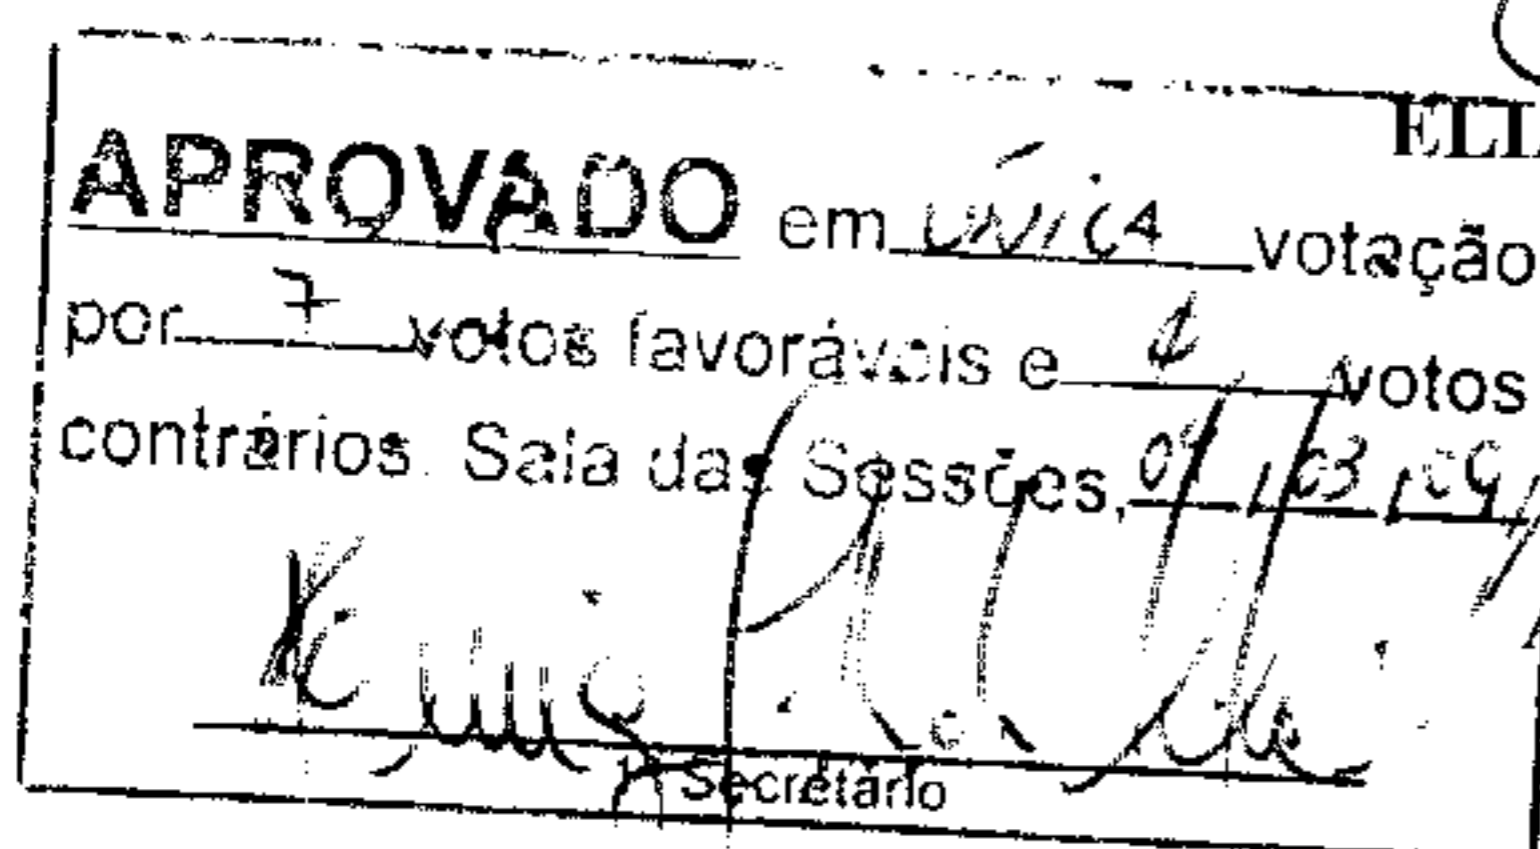 ELI
APROVADO em ÚNICA votação
por 7 votos favoráveis e 1 votos
contrários. Sala das Sessões, 09/03/09
1º Secretário